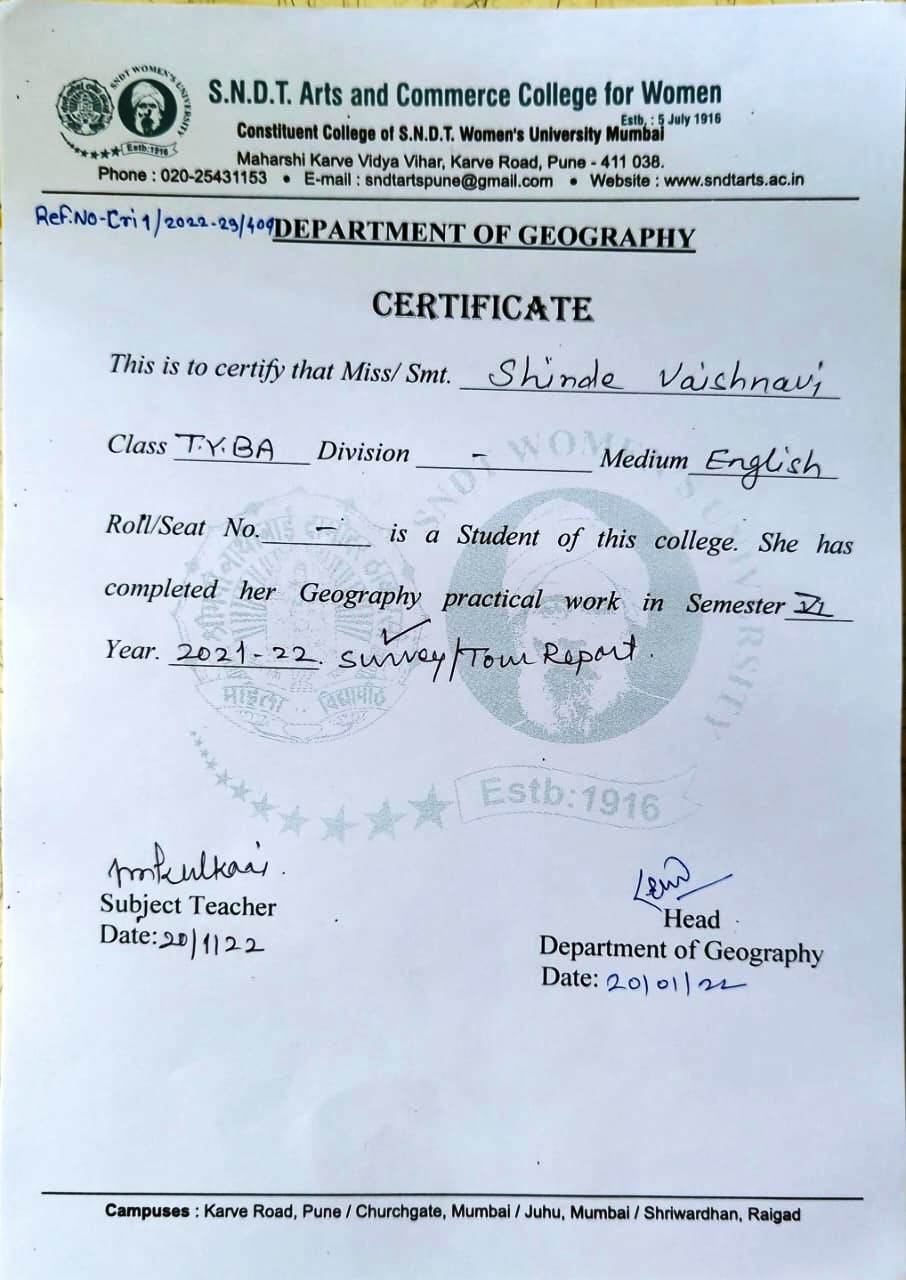 SNDT WOMEN'S UNIVERSITY
Estb:1916
S.N.D.T. Arts and Commerce College for Women
Estb. : 5 July 1916
Constituent College of S.N.D.T. Women's University Mumbai
Maharshi Karve Vidya Vihar, Karve Road, Pune - 411 038.
Phone : 020-25431153 • E-mail : sndtartspune@gmail.com • Website : www.sndtarts.ac.in
Ref.No-Cri1/2022-23/409
DEPARTMENT OF GEOGRAPHY
CERTIFICATE
This is to certify that Miss/ Smt. Shinde Vaishnavi
Class T.Y.BA Division - Medium English
Roll/Seat No. - is a Student of this college. She has
completed her Geography practical work in Semester VI
Year. 2021-22. Survey/Tour Report.
SNDT WOMEN'S UNIVERSITY
महिला विद्यापीठ
Estb:1916
Subject Teacher
Date: 20/1/22
Head
Department of Geography
Date: 20/01/22
Campuses : Karve Road, Pune / Churchgate, Mumbai / Juhu, Mumbai / Shriwardhan, Raigad